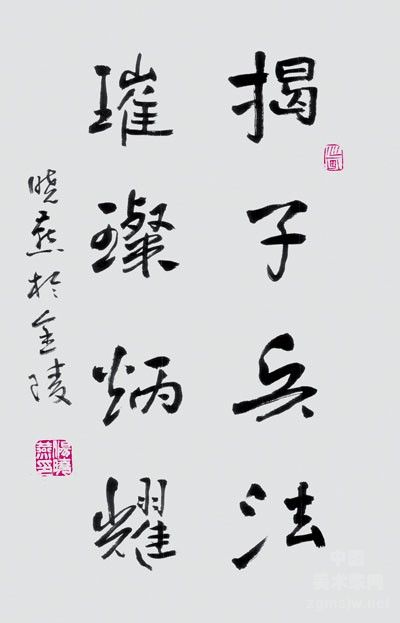 揭子兵法
璀璨炳耀
晓燕于金陵
中国
美术家网
zgmsjw.net